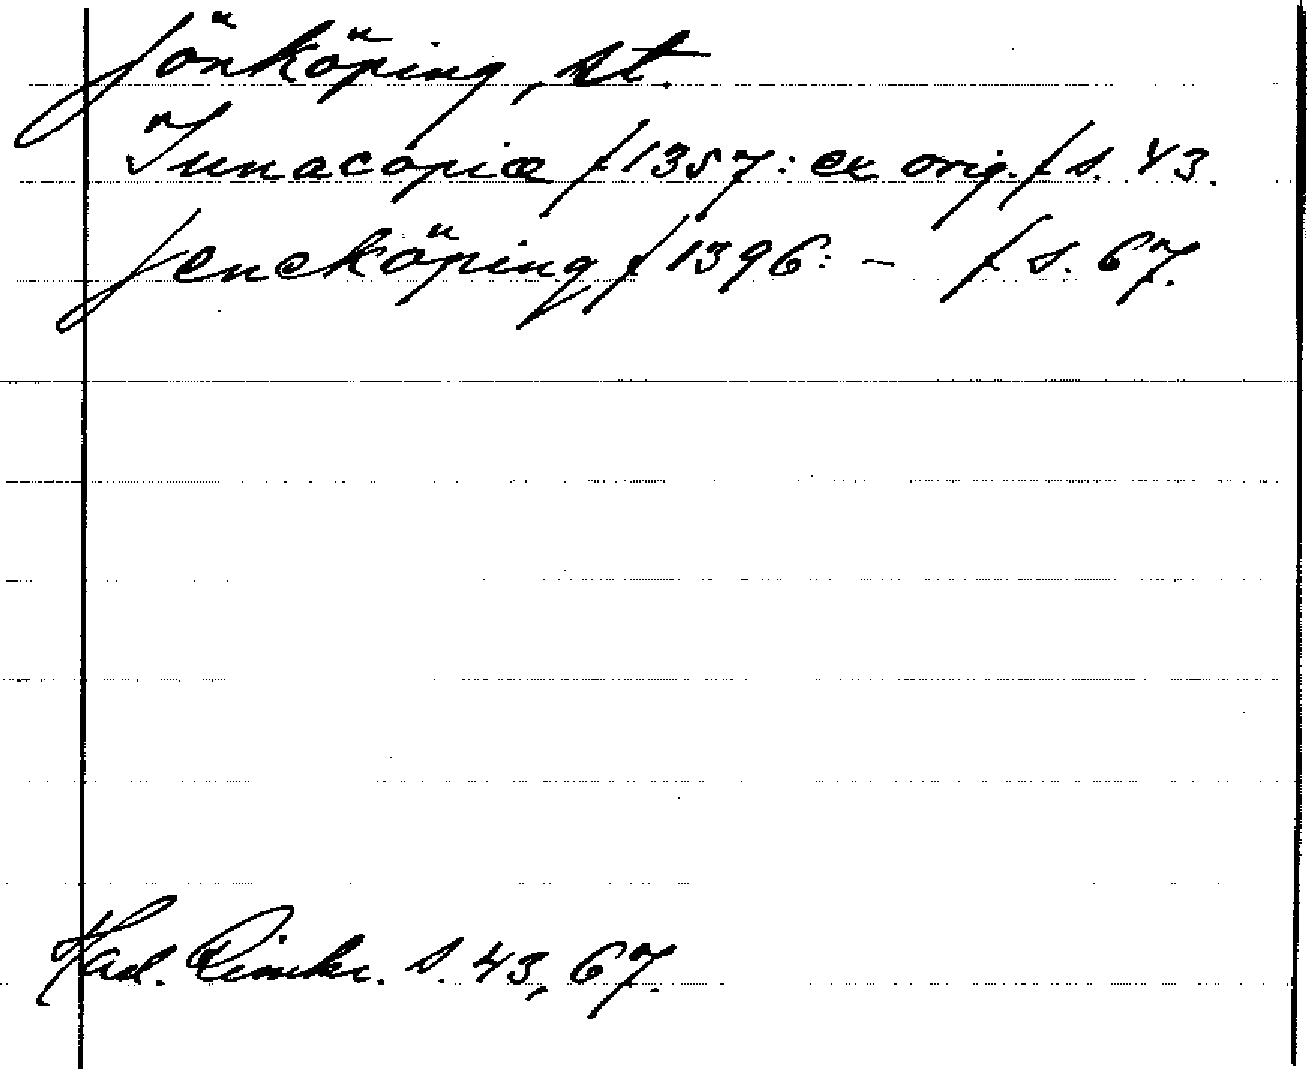 Jönköping, st.
Junacopiæ /1357: ex orig./ s. 43.
Jeneköping /1396: – / s. 67.
Had. Rimkr. s. 43, 67.